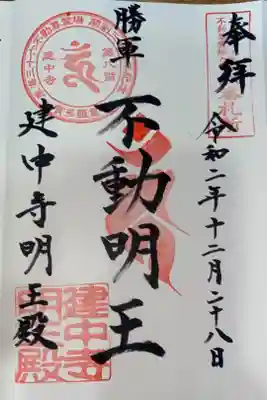 奉拝
令和二年十二月二十八日
勝軍
不動明王
建中寺明王殿
建中寺
明王殿